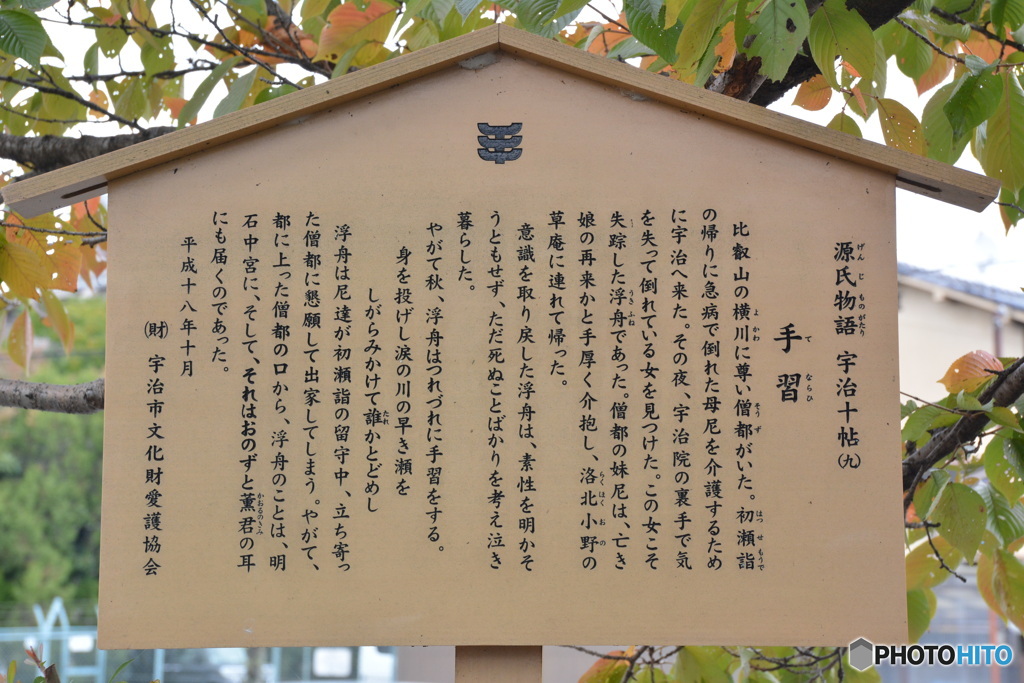 源氏物語 宇治十帖(九)
げんじものがたり
手習
てならひ
比叡山の横川に尊い僧都がいた。初瀬詣
よかわ そうず はつせもうで
の帰りに急病で倒れた母尼を介護するため
に宇治へ来た。その夜、宇治院の裏手で気
を失って倒れている女を見つけた。この女こそ
失踪した浮舟であった。僧都の妹尼は、亡き
うきふね
娘の再来かと手厚く介抱し、洛北小野の
らくほくおの
草庵に連れて帰った。
意識を取り戻した浮舟は、素性を明かそ
うともせず、ただ死ぬことばかりを考え泣き
暮らした。
やがて秋、浮舟はつれづれに手習をする。
身を投げし涙の川の早き瀬を
しがらみかけて誰かとどめし
たれ
浮舟は尼達が初瀬詣の留守中、立ち寄っ
た僧都に懇願して出家してしまう。やがて、
都に上った僧都の口から、浮舟のことは、明
石中宮に、そして、それはおのずと薫君の耳
かおるのきみ
にも届くのであった。
平成十八年十月
(財)宇治市文化財愛護協会
PHOTOHITO